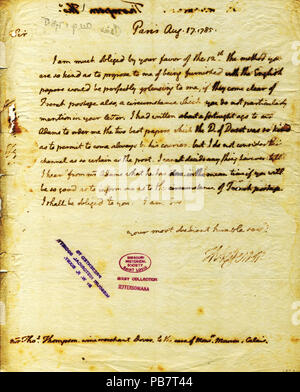 Paris Aug. 17. 1785.
Sir
I am much obliged by your favor of the 12th. the method you
are so kind as to propose to me of being furnished with the English
papers would be perfectly pleasing to me, if they come clear of
French postage, also a circumstance which you do not particularly
mention in your letter. I had written about a fortnight ago to Mr.
Adams to order me the two best papers which the D. of Dorset was so kind
as to permit to come always to his courier. but I do not consider this
channel as so certain as the post. I cannot decide any thing however till
I hear from mr Adams what he has done. in the mean time if you will
be so good as to inform me as to the circumstance of French postage
I shall be obliged to you. I am Sir
your most obedient humble servt.
Th: Jefferson
MISSOURI
HISTORICAL
SOCIETY
SAINT LOUIS
BIXBY COLLECTION
JEFFERSONIANA
Mr Thos. Thompson, wine merchant Dover. to the care of Messrs. Calais.
alamy
Image ID: PB7T44
www.alamy.com